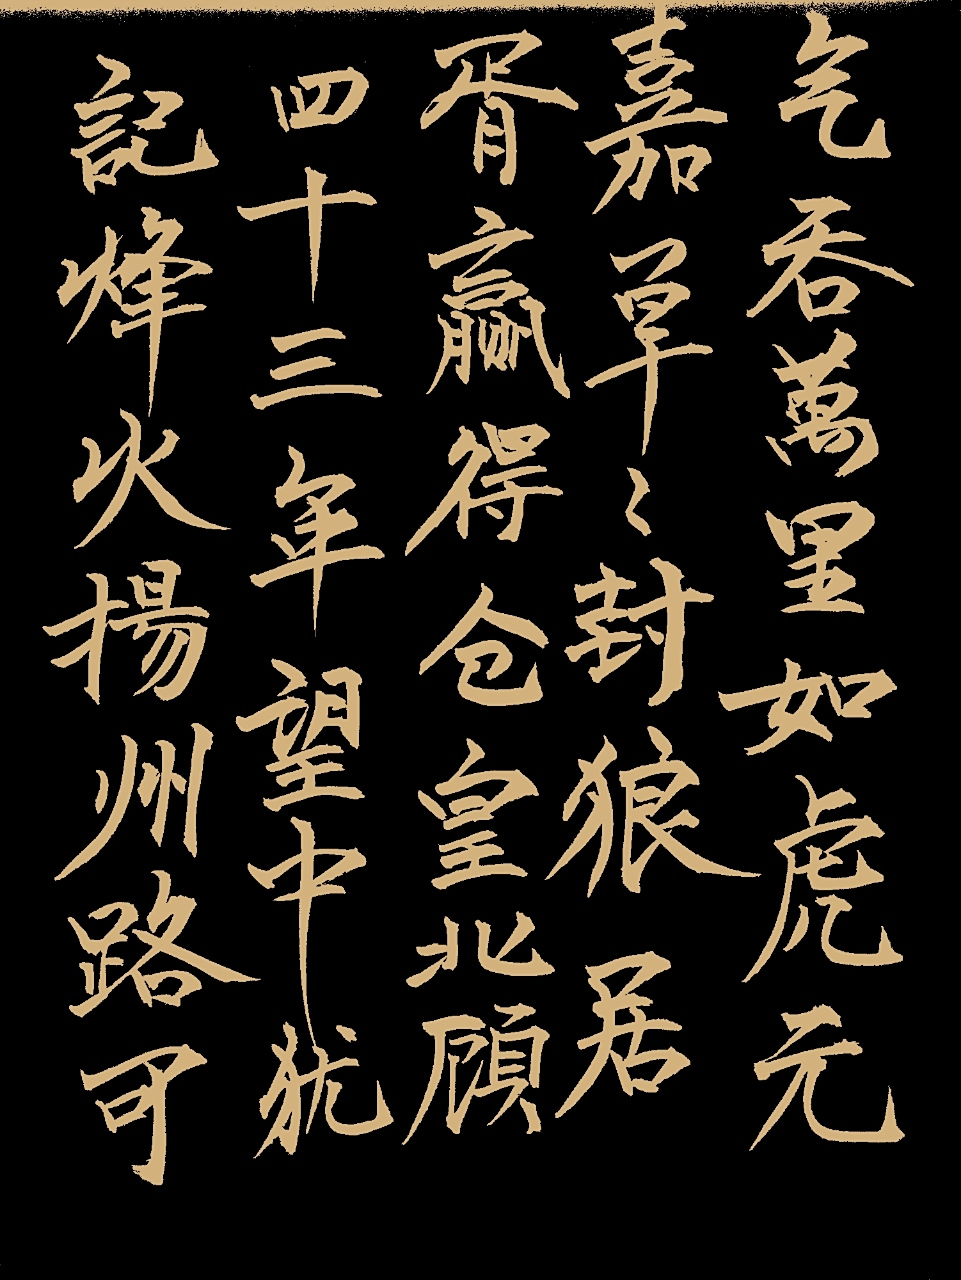 气吞萬里如虎元
嘉草〻封狼居
胥赢得仓皇北顾
四十三年望中犹
記烽火揚州路可